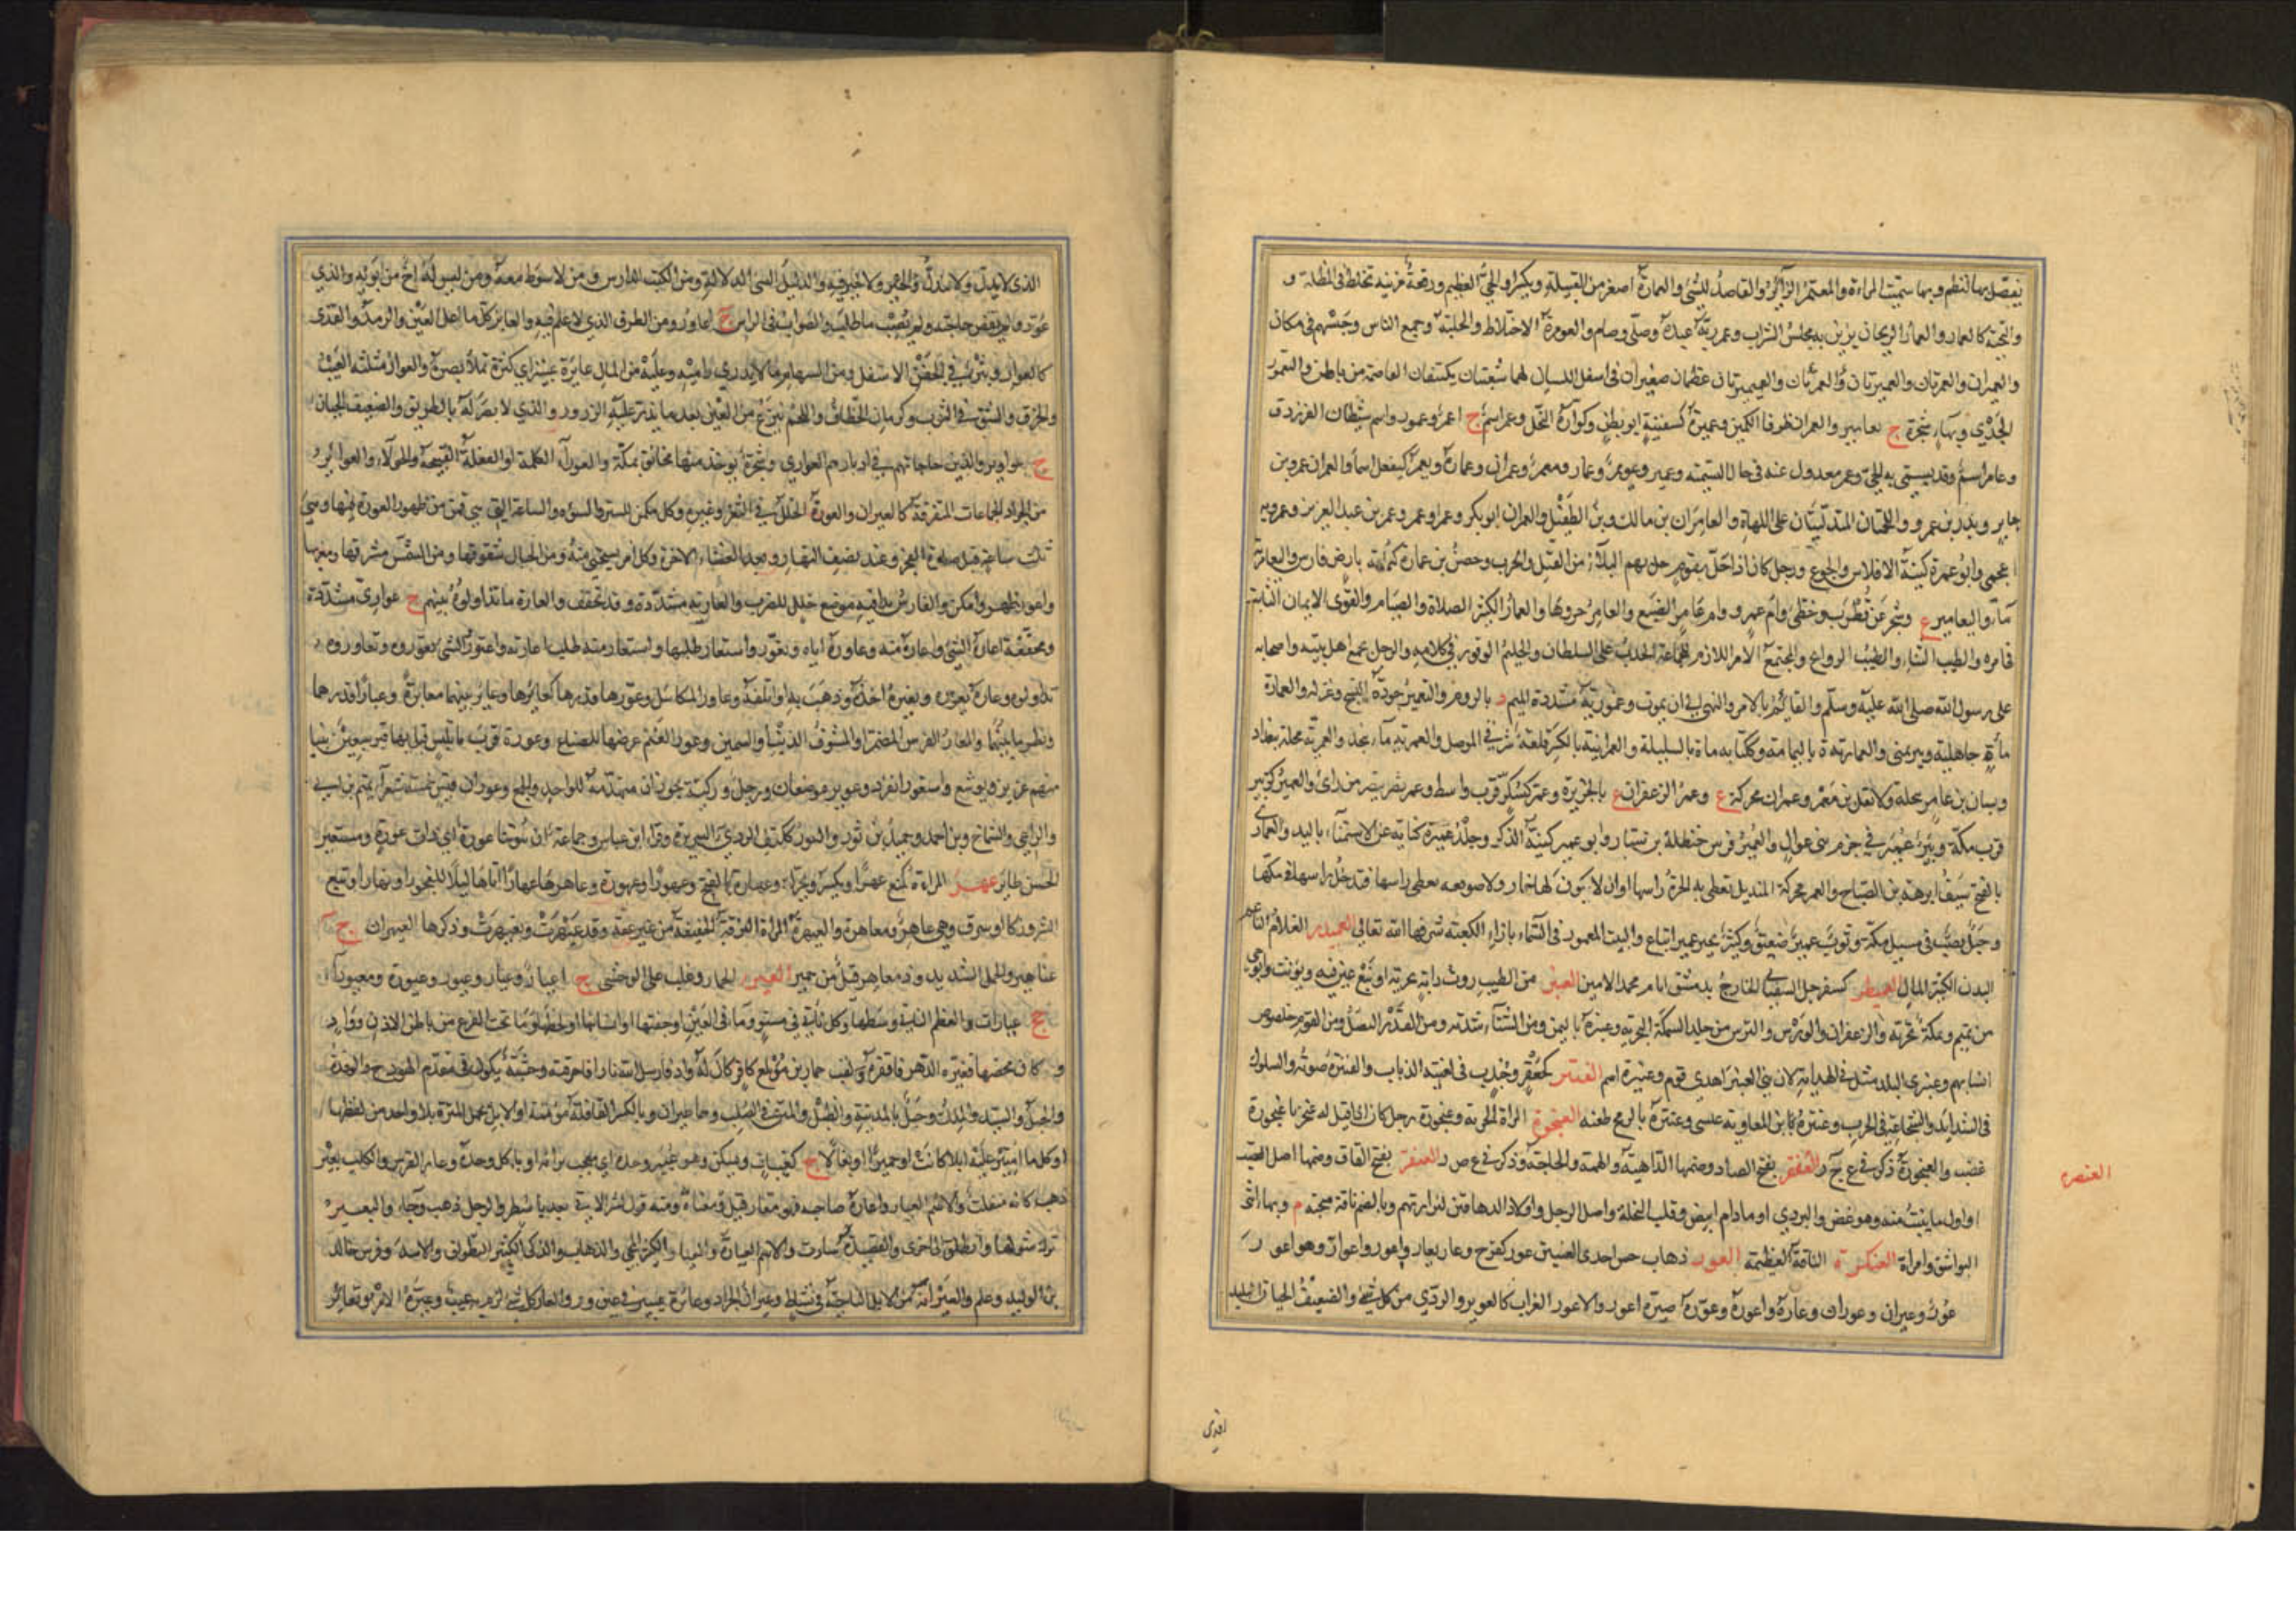 يفصل بها النظم وبها سميت المراءة والمعتمر الزائر والقاصد للشئ والعمارة اصغر من القبيلة ويكسر او الحي العظيم ورقعة مزينة تخاط في المظلة و
والتحية كالعمار والعمار الريحان يزين به مجلس الشراب وعمر ربه عبده وصلى وصام والعومرة الاختلاط والجلبة وجمع الناس وحبسهم في مكان
والعميران والعمرتان والعميرتان والعمرتان والعميميرتان عظمان صغيران في اصل اللسان لهما شعبتان يكتنفان الغلصمة من باطن واليعمور
الجدي وبهاء شجرة ج يعامير والعمران طرفا الكمين وعميرة كسفينة ابو بطن وكوارة النحل وعمر اسم ج اعمر وعمور واسم شيطان الفرزدق
وعامر اسم وقد يسمى به الحي وعمر معدول عنه في حال التسمية وعمير وعويمر وعمار ومعمر وعمران وعمارة ويعمر كيفعل اسماء والعمران عمرو بن
جابر وبدر بن عمرو واللحمتان المتدليتان على اللهاة والعامران بن مالك وبن الطفيل والعمران ابو بكر وعمر او عمر وعمر بن عبد العزيز وعمرويه
اعجمي وابو عمرة كنية الافلاس والجوع ورجل كان اذا حل بقوم حل بهم البلاء من القتل والحرب وحصن بن عمارة كثمامة بارض فارس واليعمرية
ماء واليعامير ع وشجر عن قطرب وخطئ وام عمرو وام عامر الضبع والعامر جروها والعمار الكثير الصلاة والصيام والقوى الايمان الثابت
في امره والطيب الثناء والطيب الروائح والمجتمع الامر اللازم للجماعة الحدب على السلطان والحليم الوقور في كلامه والرجل يجمع اهل بيته واصحابه
على رسول الله صلى الله عليه وسلم والقائم بالامر والنهي الى ان يموت وعمورية مشددة الميم د بالروم والتعمير جودة النسج وغزله والعمارة
مائة جاهلية وبير بمنى والعمارية ة باليمامة وكتابه ماءة بالسليلة والعمرانية بالكسر قلعة شرقي الموصل والعمرية ماء بنجد والعمرية محلة ببغداد
وبستان بن عامر بنخلة ولا تقل بن معمر وعمران محركة ع وعمر الزعفران ع بالجزيرة وعمر كسكر قرب واسط وعمر نصر بسر من راى والعمير كزبير
قرب مكة وبير عمير في حزم بني عوال والعمير فرس حنظلة بن سيار وابو عمير كنية الذكر وجلد عميرة كناية عن الاستمناء باليد والعمارى
بالفتح سيف ابرهة بن الصباح والعمر محركة المنديل تغطى به الحرة راسها او ان لا يكون لها خمار ولا صوقعة تغطى راسها فتدخل راسها في كمها
وجبل يصب في مسيل مكة وثوب عمير صفيق وكثير بجير عمير اتباع والبيت المعمور في السماء بازاء الكعبة شرفها الله تعالى العميدر الغلام الناعم
البدن الكثير المال العميطر كسفرجل السفياني الخارج بدمشق ايام محمد الامين العنبر من الطيب روث دابة بحرية او نبع عين فيه ويؤنث وابو حي
من تميم وسمكة بحرية والزعفران والورس والترس من جلد السمكة البحرية وعنبرة ة باليمن ومن الشتاء شدته ومن القدر البصل ومن القوم خلوص
انسابهم وعنبرى البلد مثل في الهداية لان بني العنبر اهدى قوم وعنبرة اسم العنتر كجعفر وجندب في لغتيه الذباب والعنترة صوته والسلوك
في الشدايد والشجاعة في الحرب وعنترة ة بن المعاوية عبسى وعنترة بالرمح طعنه العنجورة المراة الجرية وعنجورة رجل كان اذا قيل له عنجر يا عنجورة
غضب والعنجورة ذكر في ع ج ر العنصر بفتح الصاد وضمها الداهية والهمة والحاجة وذكر في ع ص ر العنقر بفتح القاف وضمها اصل القصب
او اول ما ينبت منه وهو غض والبردي او ما دام ابيض وقلب النخلة واصل الرجل واولاد الدهاقين لترارتهم وبالضم ناقة منجبة م وبهاء انثى
البواشق وامراة العنكرة الناقة العظيمة العور ذهاب حس احدى العينين عور كفرح وعار يعار واعور واعوار وهو اعور
عور وعيران وعوران وعاره واعوره وعوره صيره اعور والاعور الغراب كالعوير والردي من كل شئ والضعيف الجبان البليد
العنصر
الذي لا يدل ولا يندل ولا خير فيه والدليل السئ الدلالة ومن الكتب الدارس ومن لا سوط معه ومن ليس له اخ من ابويه والذي
عور ولم تقض حاجته ولم يصب ما طلب والصواب في الراس ج اعاور ومن الطرق الذي لا علم فيه والعائر كل ما اعل العين والرمد والقذى
كالعوار وبثر في الجفن الاسفل ومن السهام ما لا يدرى راميه وعليه من المال عايرة عينين اي كثرة تملا بصره والعوار مثلثة العيب
والخرق والشق في الثوب وكرمان الخطاف واللحم ينزع من العين بعد ما يذر عليه الذرور والذي لا بصر له بالطريق والضعيف الجبان
ج عواوير والذين حاجاتهم في ادبارهم العوارى وشجرة يوخذ منها مخانق بمكة والعوراء الكلمة او الفعلة القبيحة والحولاء والعوائر
من الجراد الجماعات المتفرقة كالعيران والعورة الخلل في الثغر وغيره وكل مكمن للستر والسوءة والساعة التي هي قمن من ظهور العورة فيها وهي
ثلث ساعة قبل صلوة الفجر وعند نصف النهار وبعد العشاء الاخرة وكل امر يستحيى منه ومن الجبال شقوقها ومن الشمس مشرقها ومغربها
واعور ظهر وامكن والفارس بدا فيه موضع خلل للضرب والعارية مشددة وقد تخفف والعارة ما تداولوه بينهم ج عوارى مشددة
ومخففة اعاره الشئ واعاره منه وعاوره اياه وتعور واستعار طلبها واستعاره منه طلب اعارته واعتوروا الشئ وتعوروه وتعاوروه
تداولوه وعاره يعوره ويعيره اخذه وذهب به او اتلفه وعاور المكائيل وعورها قدرها كعايرها وعاير بينهما معايرة وعيارا قدرهما
ونظر ما بينهما والمعار الفرس المضمر او المنتوف الذنب او السمين وعور الغنم عرضها للضياع وعورة قرب نابلس قيل بها قبر سبعين نبيا
منهم عزير ويوشع واستعور انفرد وعوير موضعان ورجل وركية عوران متهدمة للواحد والجمع وعوران قيس خمسة شعراء تميم بن ابي
والراعي والشماخ وبن احمد وحميد بن ثور والعور ككتف الردي السريرة وقراءة ابن عباس وجماعة ان بيوتنا عورة اي ذات عورة ومستعير
الحسن طاير عهر المراءة كمنع عهرا ويكسر ويحرك وعهارة بالفتح وعهورا وعهورة وعاهرها عهارا اتاها ليلا للفجور او نهارا او تبع
الشر وزنى او سرق وهي عاهر ومعاهرة والعيهرة المراة النزقة الخفيفة من غير عفة وقد عيهرت وتعيهرت وذكرها العيهران ج
عياهير والجمل الشديد وذو معاهر قيل من حمير العير الحمار وغلب على الوحشي ج اعيار وعيار وعيور وعيورة ومعيوراء
جج عيارات والعظم الناتئ وسطها وكل ناتئ في مستو وما في العين او جفنها او انسانها او لحظها وما تحت الفرع من باطن الاذن وواد
و ع كان مخصبا فغيره الدهر فاقفره ولقب حمار بن مويلع كافر كان له واد فارسل الله نارا فاحرقته وخشبة تكون في مقدم الهودج والوتد
والجبل والسيد والملك وجبل بالمدينة والطبل والمتن في الصلب وهما عيران وبالكسر القافلة مؤنثة او الابل تحمل الميرة بلا واحد من لفظها
او كل ما امتير عليه ابلا كانت او حميرا او بغالا ج كعنبات ويسكن وهو عيير وحده اي معجب برايه او ياكل وحده وعار الفرس والكلب يعير
ذهب كانه منفلت والاسم العيار واعاره صاحبه فهو معار قيل ومنه قول بشر الاتي بعد باسطر والرجل ذهب وجاء والبعير
ترك شولها وانطلق الى اخرى والقصيدة سارت والاسم العيارة والعيار الكثير المجئ والذهاب والذكي الكثير التطواف والاسد وفرس خالد
بن الوليد وعلم والعيرانة من الابل الناجية في نشاط وعيران الجراد وعائرة عينين في عين ور والعار كل شئ لزم به عيب وعيره الامر وتعاير